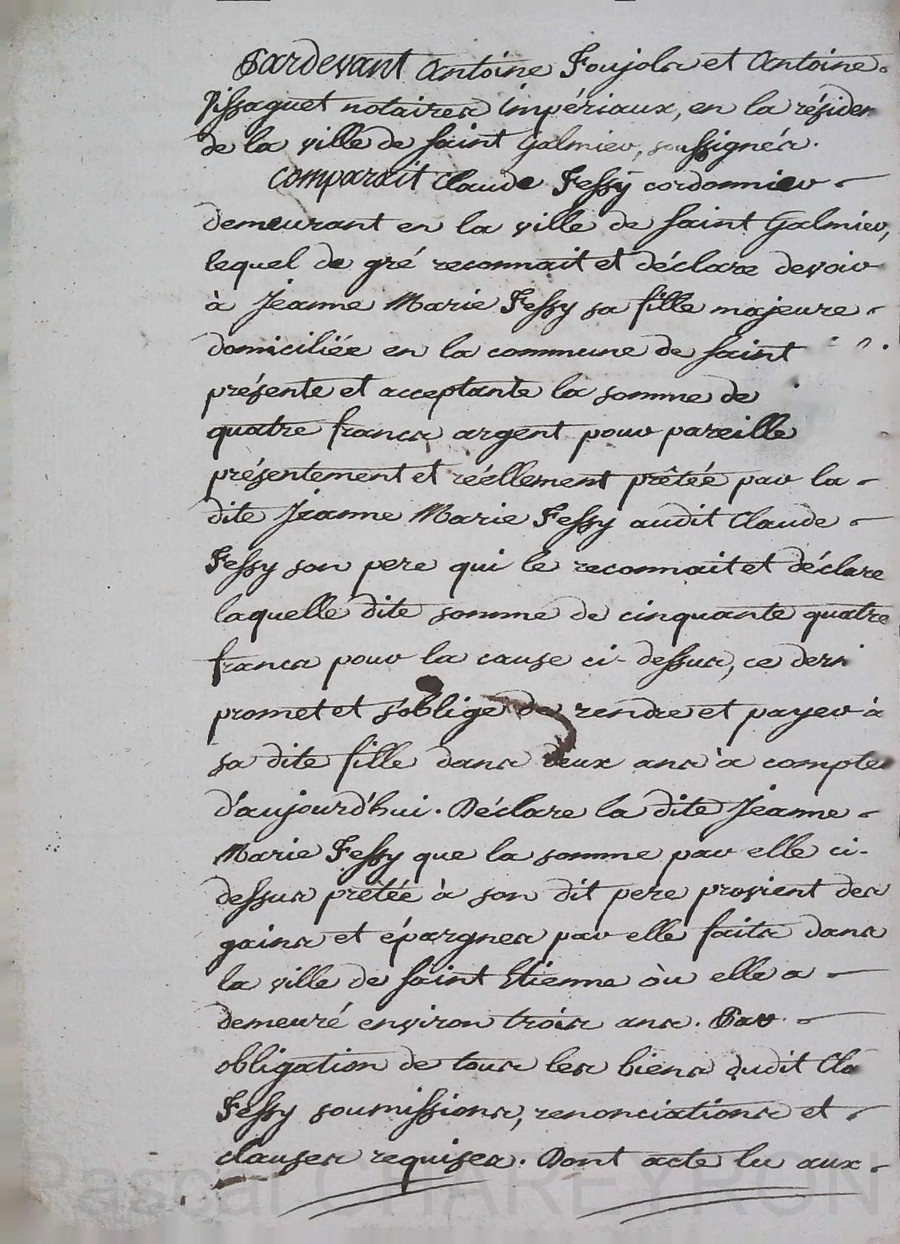 Pardevant Antoine Foujols et Antoine
Vissaguet notaires impériaux, en la résiden
de la ville de saint Galmier, soussignés.
Comparait Claude Fessy cordonnier
demeurant en la ville de saint Galmier,
lequel de gré reconnait et déclare devoir
à Jeanne Marie Fessy sa fille majeure
domiciliée en la commune de saint
présente et acceptante la somme de
quatre francs argent pour pareille
présentement et réellement prêtée par la
dite Jeanne Marie Fessy audit Claude
Fessy son pere qui le reconnait et déclare
laquelle dite somme de cinquante quatre
francs pour la cause ci-dessus, ce derni
promet et s'oblige de rendre et payer à
sa dite fille dans deux ans à compter
d'aujourd'hui. Déclare la dite Jeanne
Marie Fessy que la somme par elle ci-
dessus prêtée à son dit pere provient des
gains et épargnes par elle faits dans
la ville de saint Etienne où elle a
demeuré environ trois ans. Par
obligation de tous les biens dudit Cla
Fessy soumissions, renonciations et
clauses requises. Dont acte lu aux
Pascal CHAREYRON